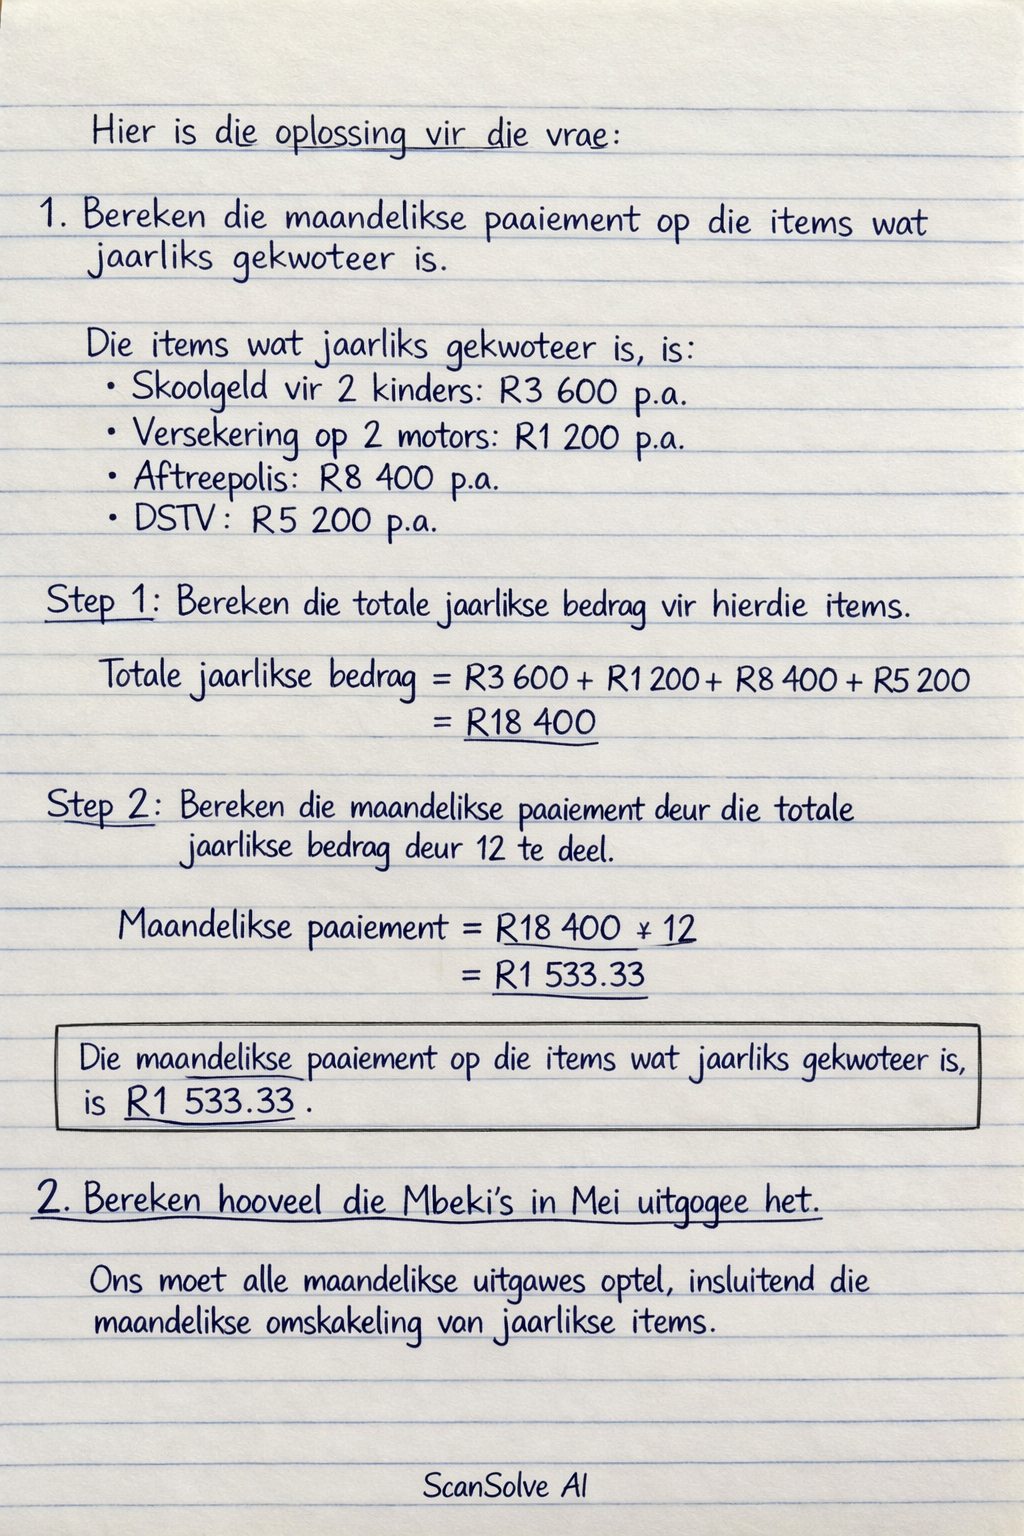 Hier is die oplossing vir die vrae:
1. Bereken die maandelikse paaiement op die items wat
jaarliks gekwoteer is.
Die items wat jaarliks gekwoteer is, is:
• Skoolgeld vir 2 kinders: R3 600 p.a.
• Versekering op 2 motors: R1 200 p.a.
• Aftreepolis: R8 400 p.a.
• DSTV: R5 200 p.a.
Step 1: Bereken die totale jaarlikse bedrag vir hierdie items.
Totale jaarlikse bedrag = R3 600 + R1 200 + R8 400 + R5 200
= R18 400
Step 2: Bereken die maandelikse paaiement deur die totale
jaarlikse bedrag deur 12 te deel.
Maandelikse paaiement = R18 400 ¥ 12
= R1 533.33
Die maandelikse paaiement op die items wat jaarliks gekwoteer is,
is R1 533.33.
2. Bereken hooveel die Mbeki's in Mei uitgogee het.
Ons moet alle maandelikse uitgawes optel, insluitend die
maandelikse omskakeling van jaarlikse items.
ScanSolve AI